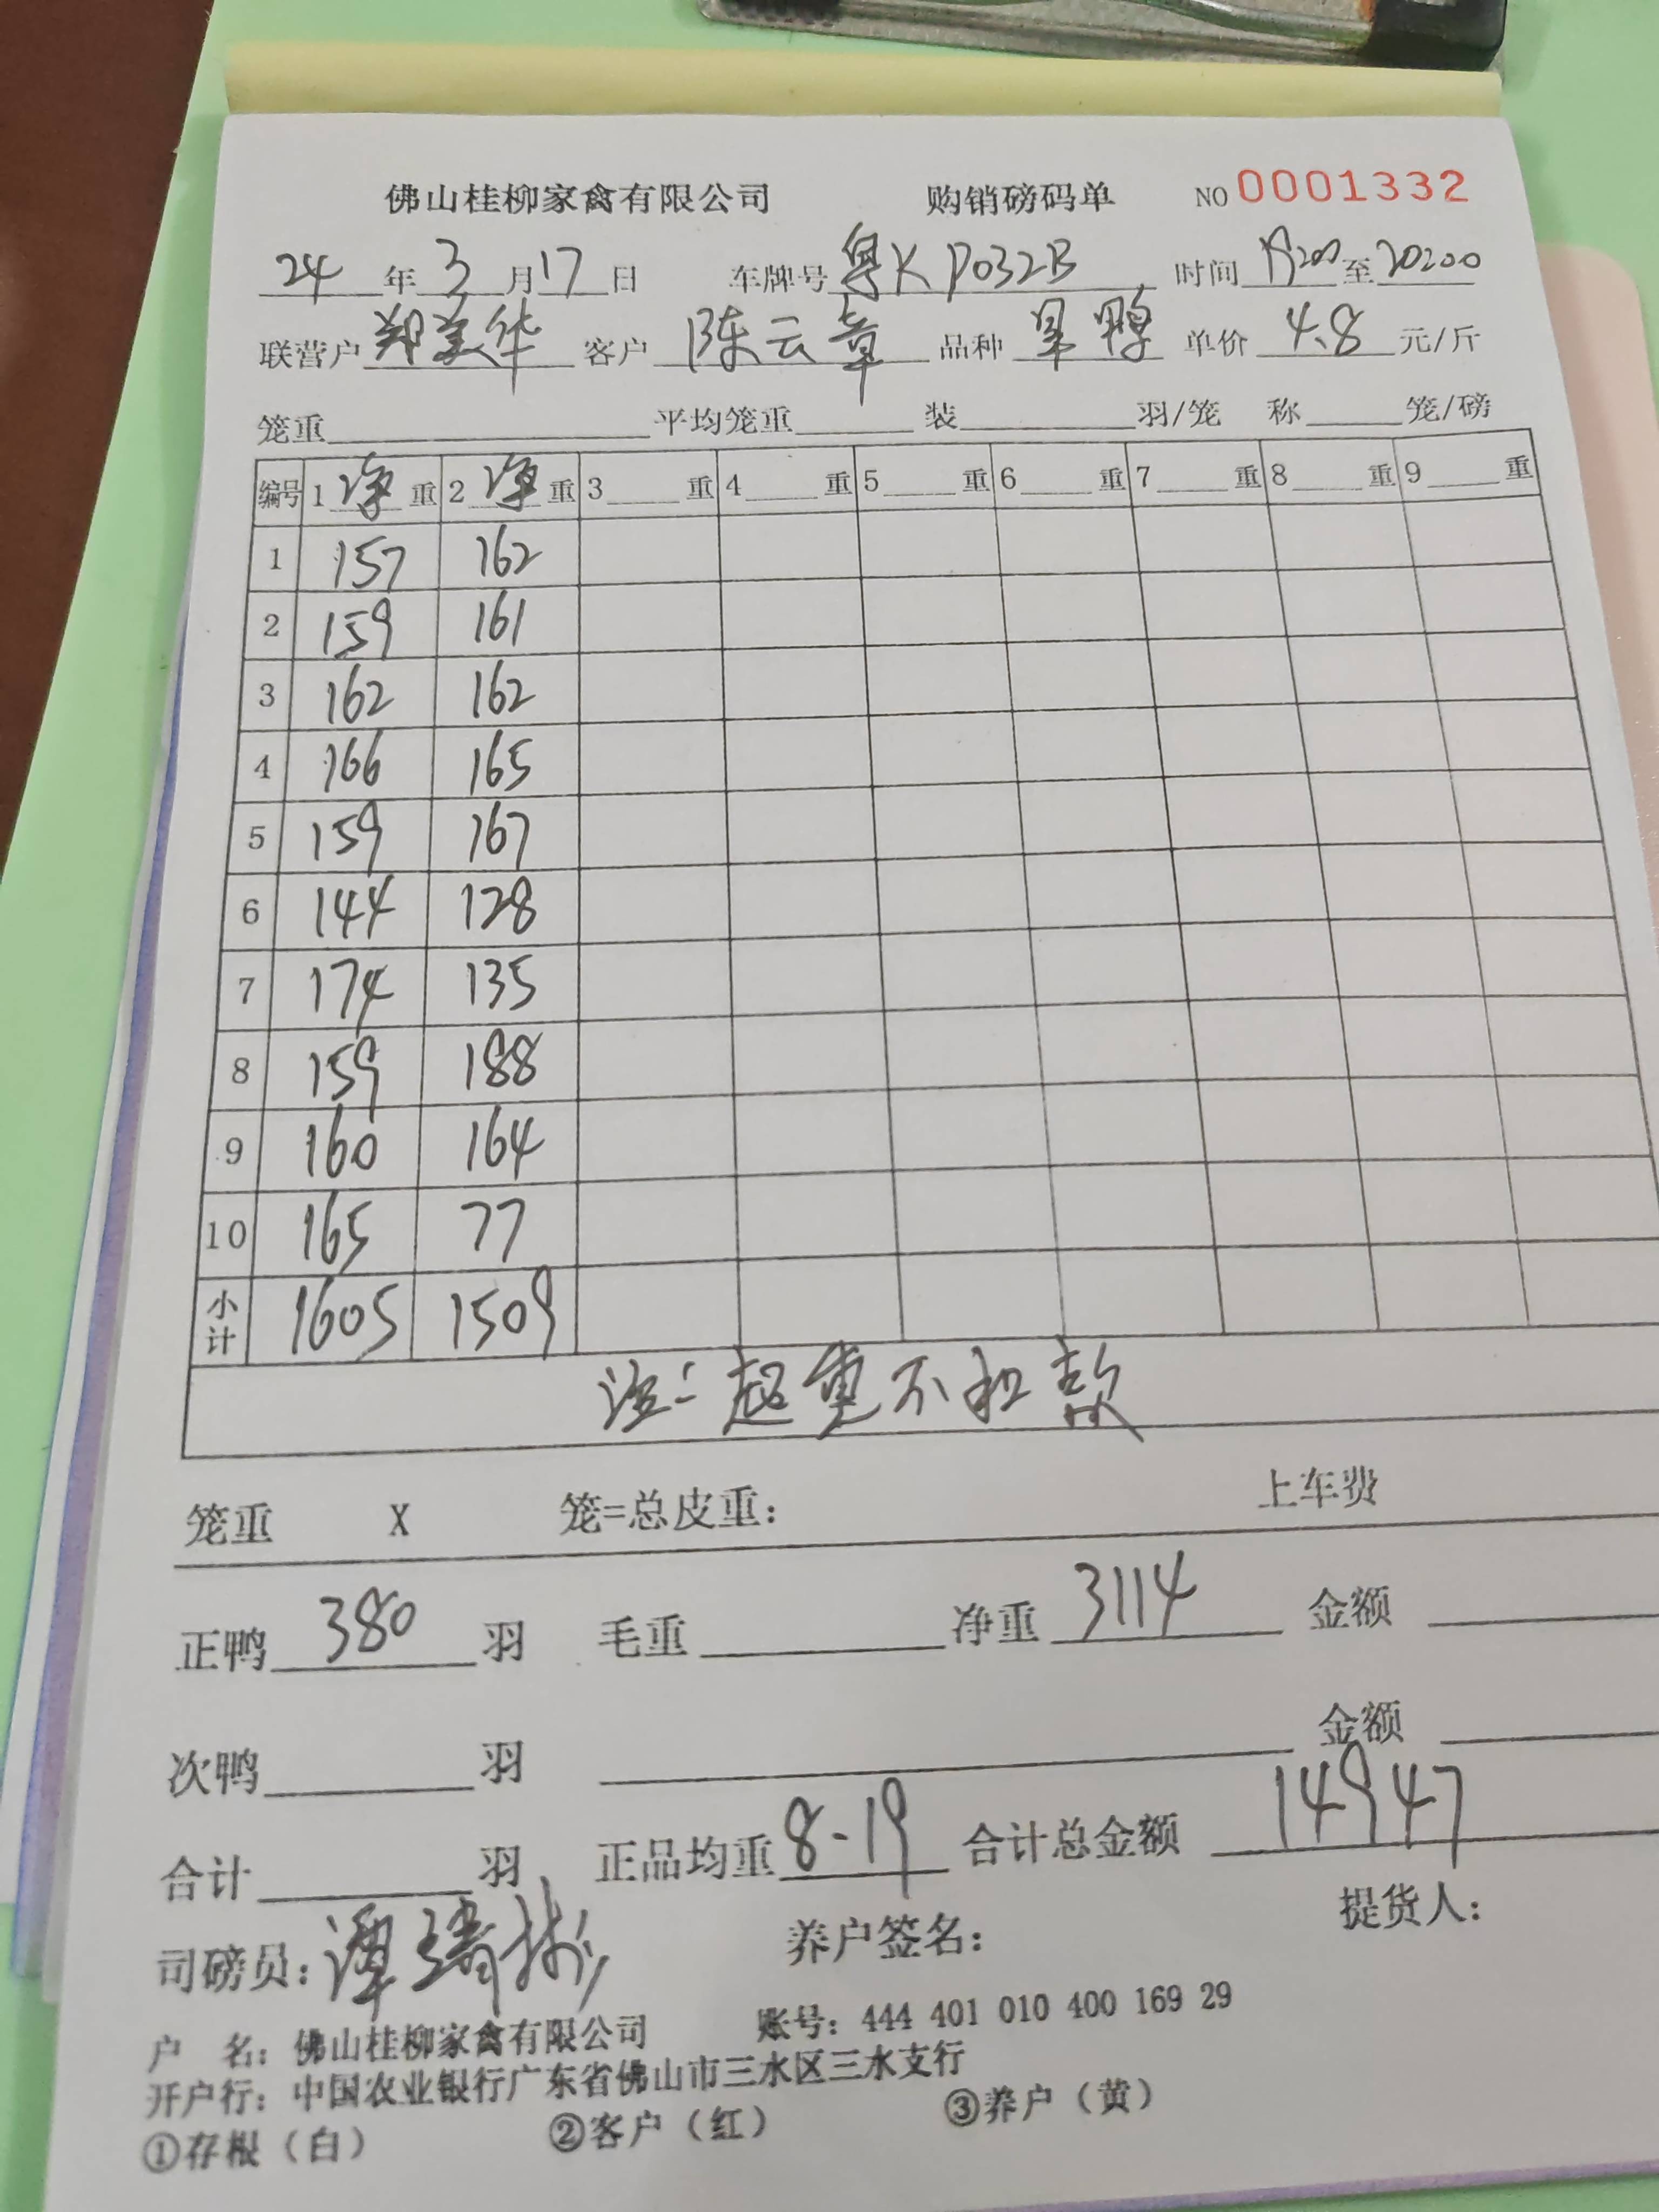 佛山桂柳家禽有限公司 购销磅码单 NO 0001332
24 年 3 月 17 日 车牌号 粤K P032B 时间 19:00 至 20:00
联营户 郑美华 客户 陈云章 品种 果鸭 单价 4.8 元/斤
笼重 平均笼重 装 羽/笼 称 笼/磅
编号 1 净 重 2 净 重 3 重 4 重 5 重 6 重 7 重 8 重 9 重
1 157 162
2 159 161
3 162 162
4 166 165
5 159 167
6 144 128
7 174 135
8 159 188
9 160 164
10 165 77
小计 1605 1509
注: 超重不扣款
笼重 X 笼=总皮重: 上车费
正鸭 380 羽 毛重 净重 3114 金额
次鸭 羽 金额
合计 羽 正品均重 8-19 合计总金额 14947
司磅员: 谭琦彬 养户签名: 提货人:
户 名: 佛山桂柳家禽有限公司 账号: 444 401 010 400 169 29
开户行: 中国农业银行广东省佛山市三水区三水支行
①存根（白） ②客户（红） ③养户（黄）